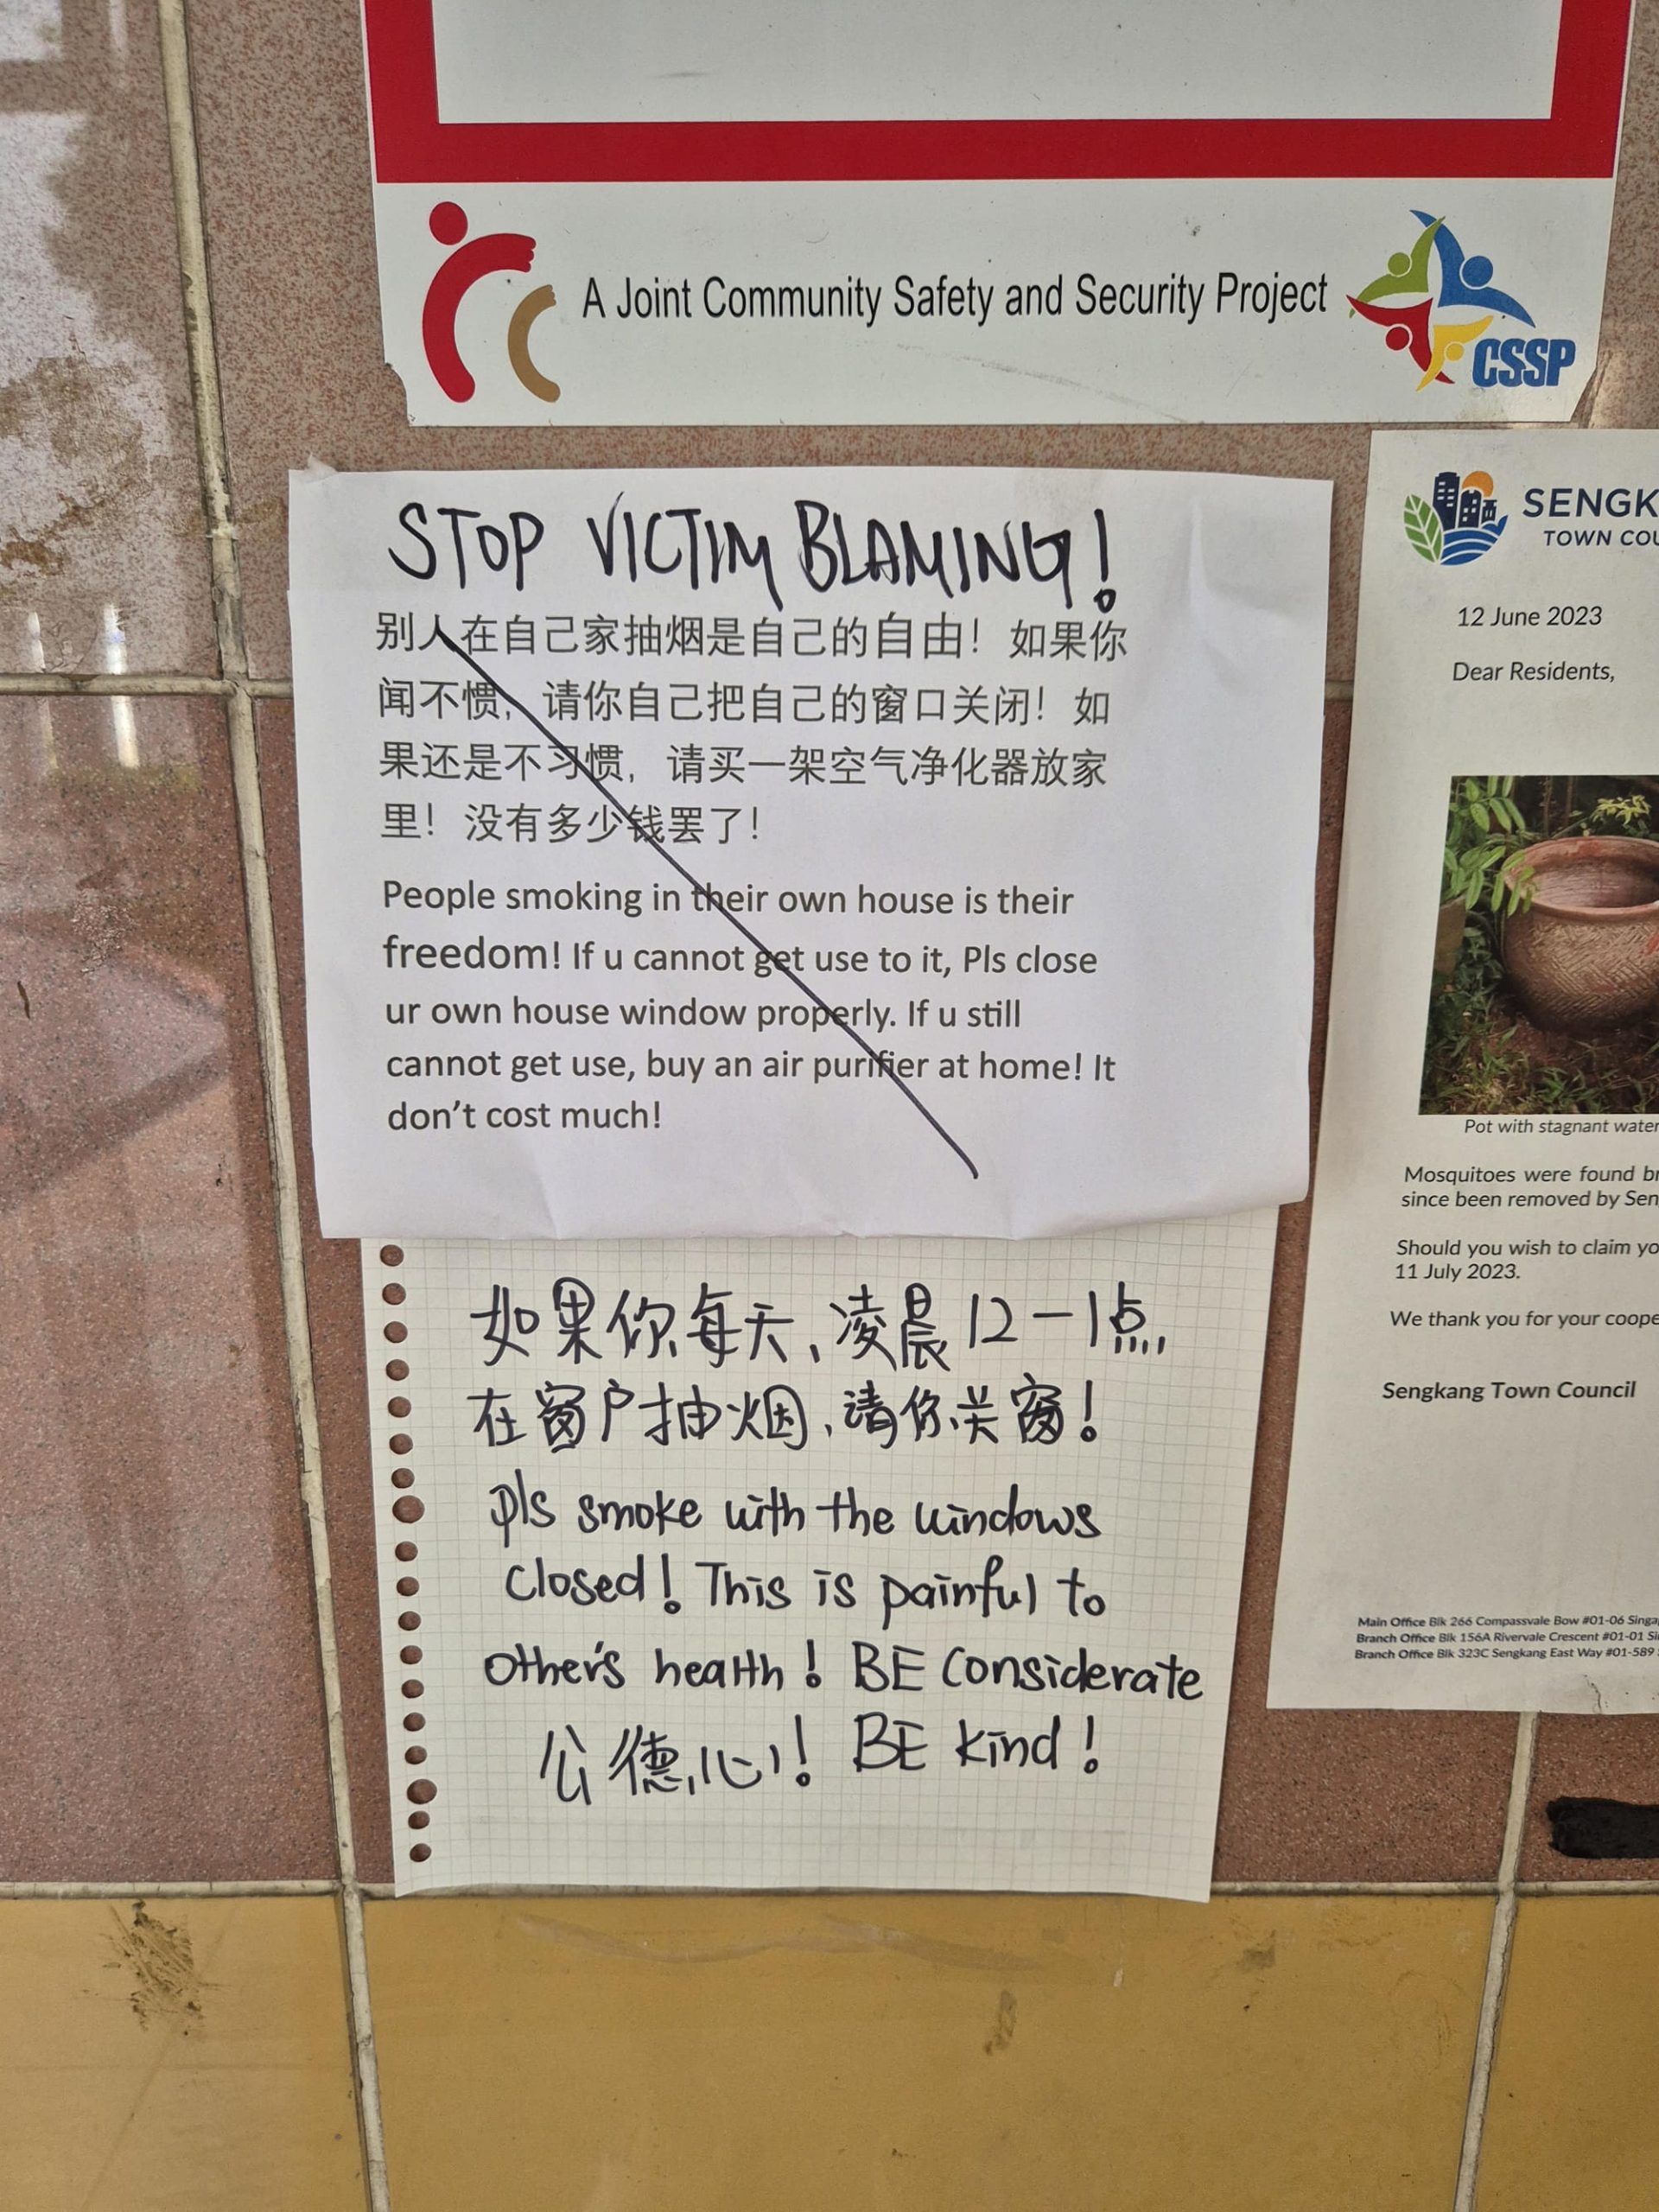 A Joint Community Safety and Security Project
CSSP
STOP VICTIM BLAMING!
别人在自己家抽烟是自己的自由！如果你
闻不惯，请你自己把自己的窗口关闭！如
果还是不习惯，请买一架空气净化器放家
里！没有多少钱罢了！
People smoking in their own house is their
freedom! If u cannot get use to it, Pls close
ur own house window properly. If u still
cannot get use, buy an air purifier at home! It
don't cost much!
如果你每天、凌晨12-1点,
在窗户抽烟,请你关窗!
pls smoke with the windows
closed! This is painful to
other's health! BE considerate
公德心! BE kind!
SENGK
TOWN COU
12 June 2023
Dear Residents,
Pot with stagnant water
Mosquitoes were found br
since been removed by Sen
Should you wish to claim yo
11 July 2023.
We thank you for your coope
Sengkang Town Council
Main Office Blk 266 Compassvale Bow #01-06 Singa
Branch Office Blk 156A Rivervale Crescent #01-01 Si
Branch Office Blk 323C Sengkang East Way #01-589